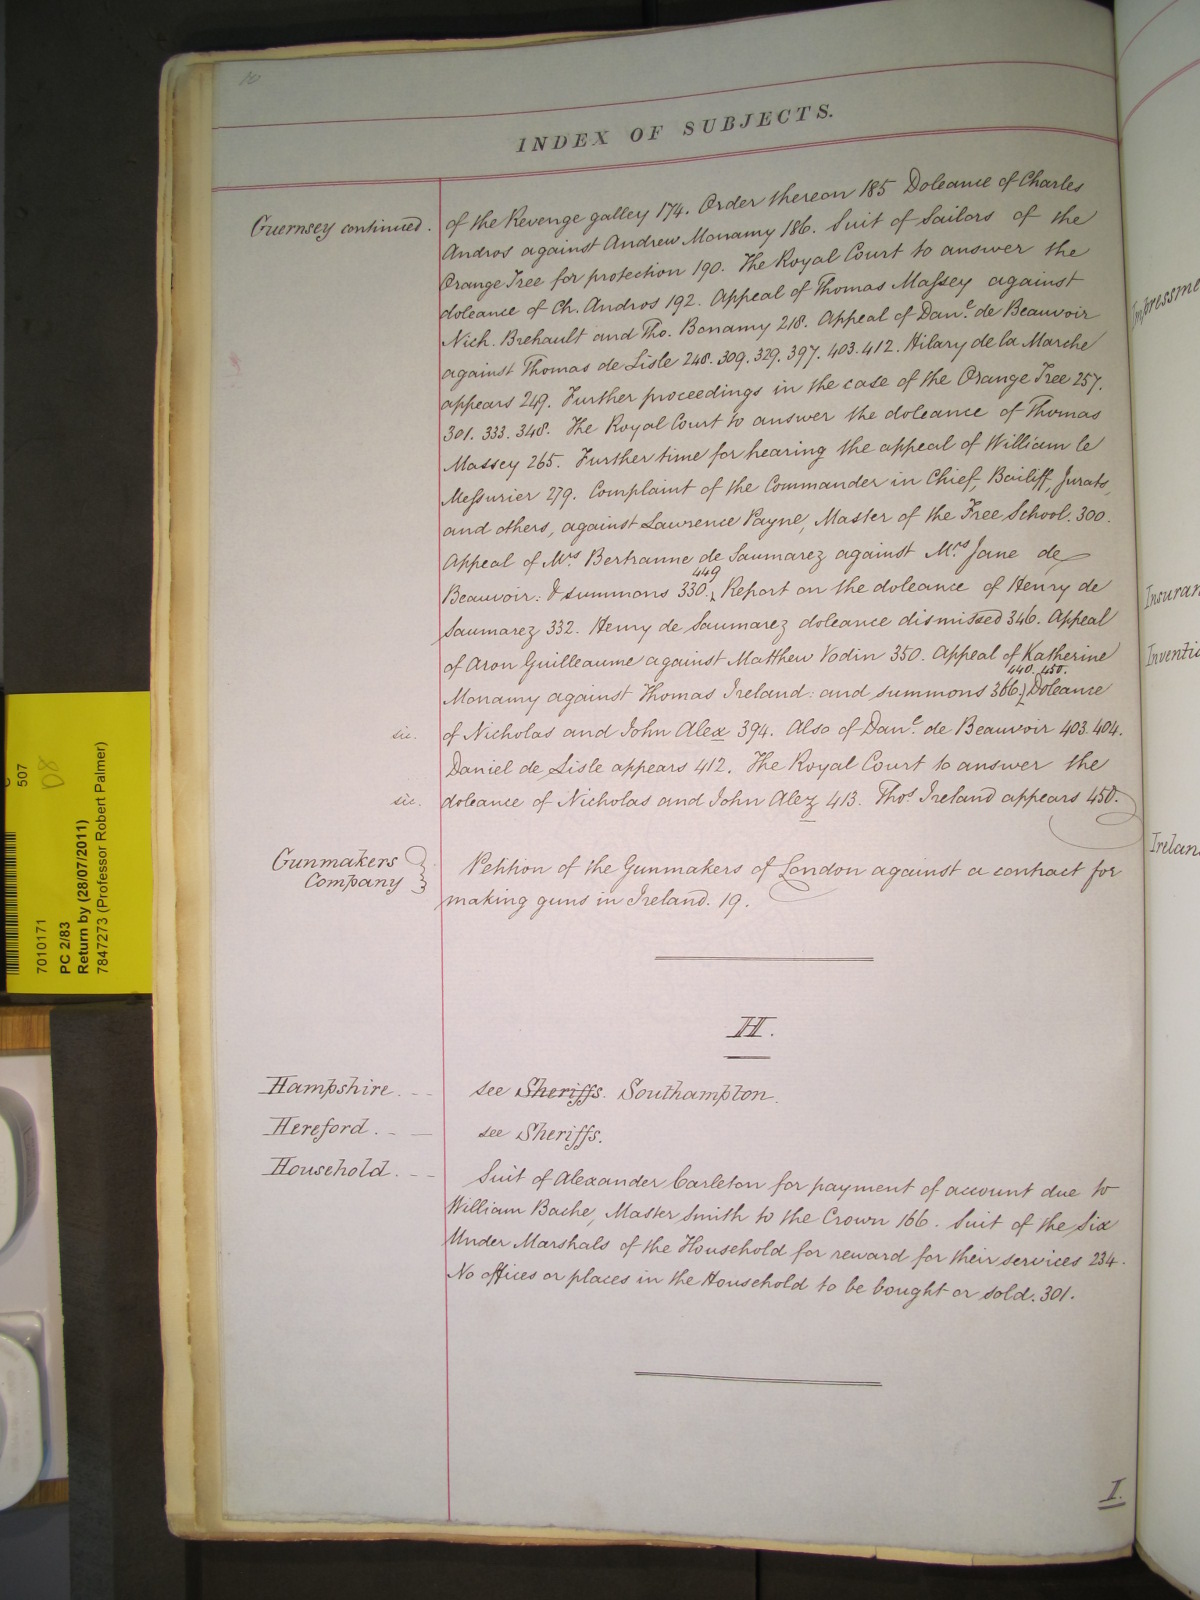 10
INDEX OF SUBJECTS.
Guernsey continued. of the Revenge galley 174. Order thereon 185 Doleance of Charles
Andros against Andrew Monamy 186. Suit of Sailors of the
Orange Tree for protection 190. The Royal Court to answer the
doleance of Ch. Andros 192. Appeal of Thomas Massey against
Nich. Brehault and Tho. Bonamy 218. Appeal of Danl. de Beauvoir
against Thomas de Lisle 248. 309. 329. 397. 403. 412. Hilary de la Marche
appears 249. Further proceedings in the case of the Orange Tree 257.
301. 333. 348. The Royal Court to answer the doleance of Thomas
Massey 265. Further time for hearing the appeal of William le
Messurier 279. Complaint of the Commander in Chief, Bailiff, Jurats,
and others, against Lawrence Payne, Master of the Free School. 300.
Appeal of Mrs Bertranne de Saumarez against Mrs Jane de
449
Beauvoir: & summons 330. Report on the doleance of Henry de
Saumarez 332. Henry de Saumarez doleance dismissed 346. Appeal
of Aron Guilleaume against Matthew Vodin 350. Appeal of Katherine
440. 450.
Monamy against Thomas Ireland: and summons 366. Doleance
sic. of Nicholas and John Alex 394. Also of Danl. de Beauvoir 403. 404.
Daniel de Lisle appears 412. The Royal Court to answer the
sic. doleance of Nicholas and John Alez 413. Thos Ireland appears 450.
Gunmakers
Company
Petition of the Gunmakers of London against a contract for
making guns in Ireland. 19.
H.
Hampshire. see Sheriffs. Southampton.
Hereford. see Sheriffs.
Household. Suit of Alexander Carleton for payment of account due to
William Bache, Master Smith to the Crown 166. Suit of the Six
Under Marshals of the Household for reward for their services 234.
No offices or places in the Household to be bought or sold. 301.
I.
Insuran
Inventi
Irelan
507
D8
7010171
PC 2/83
Return by (28/07/2011)
7847273 (Professor Robert Palmer)